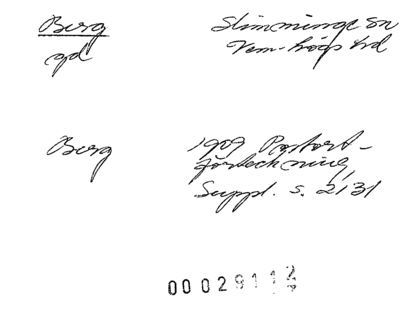 Berg
gd
Slimminge sn
Vem-högs hd
Berg
1909 Postort-
förteckning,
Suppl. s. 2131
0002911